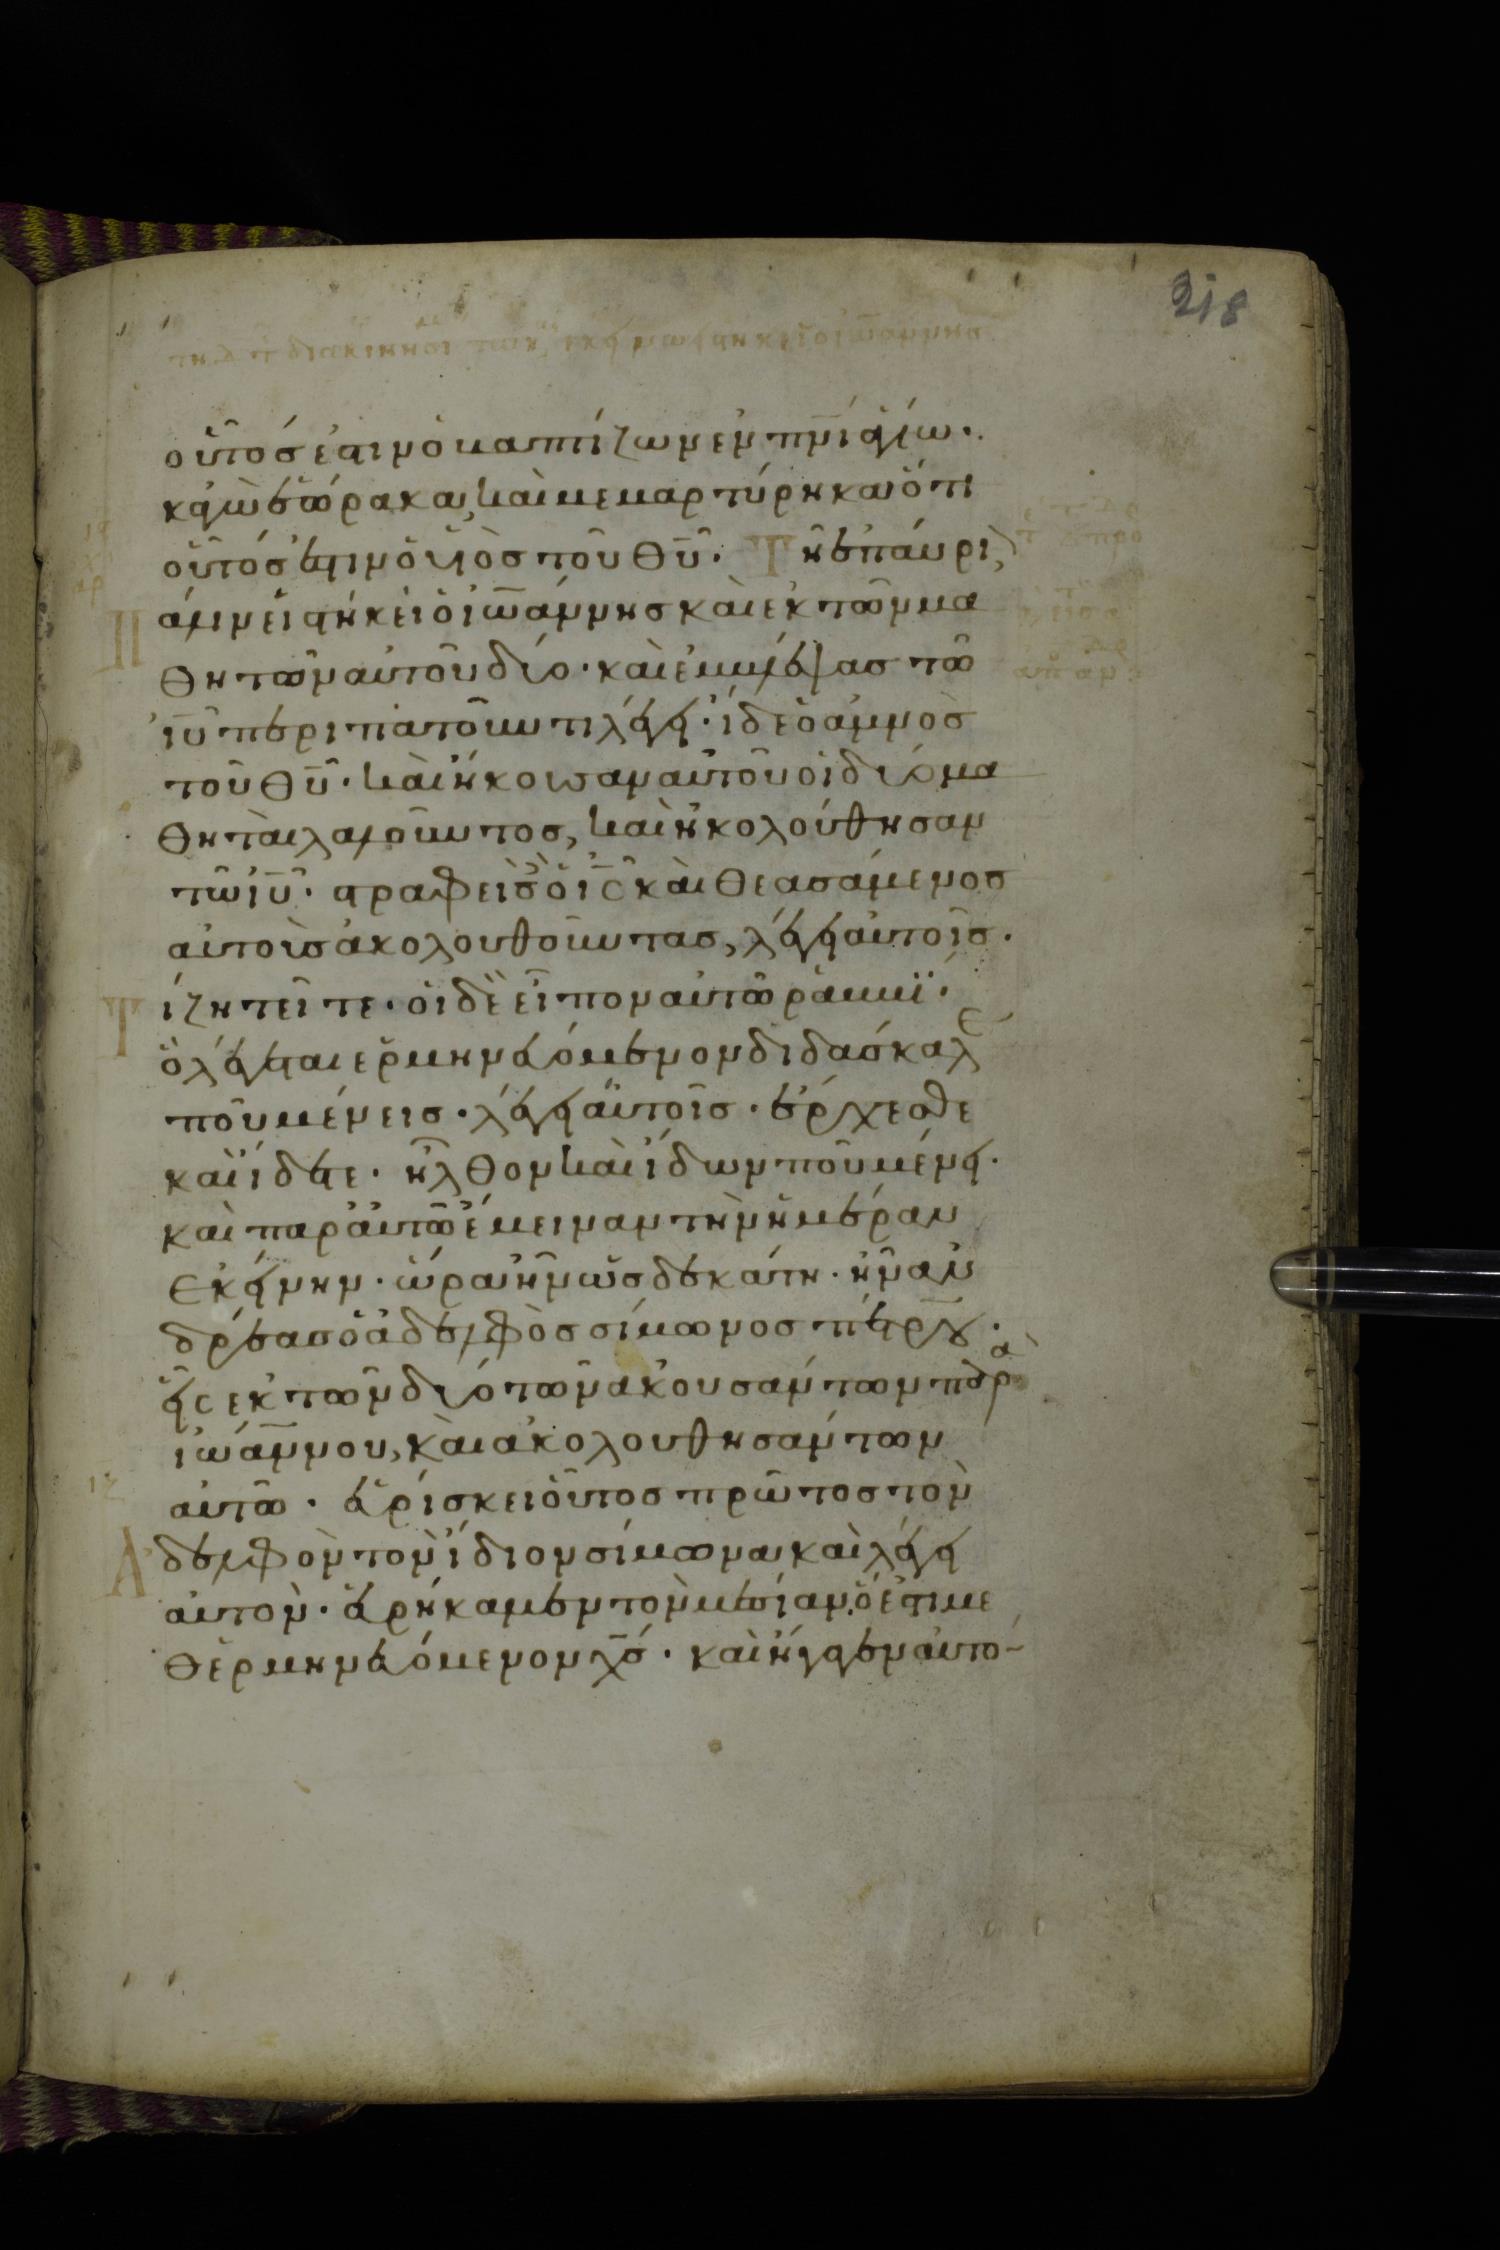 218
οὗτός ἐστιν ὁ βαπτίζων ἐν πνι ἁγίω·
κἀγὼ ἑώρακα, καὶ μεμαρτύρηκα ὅτι
οὗτός ἐστιν ὁ υἱὸς τοῦ θυ· Τῆ ἐπαύρι
ον πάλιν εἱστήκει ὁ ἰωάννης καὶ ἐκ τῶν μα
θητῶν αὐτοῦ δύο· καὶ ἐμβλέψας τῶ
ιυ περιπατοῦντι λέγει· ἴδε ὁ ἀμνὸς
τοῦ θυ· καὶ ἤκουσαν αὐτοῦ οἱ δύο μα
θηταὶ λαλοῦντος, καὶ ἠκολούθησαν
τῶ ιυ· στραφεὶς δὲ ὁ ις καὶ θεασάμενος
αὐτοὺς ἀκολουθοῦντας, λέγει αὐτοῖς·
Τί ζητεῖτε· οἱ δὲ εἶπον αὐτῶ ῥαββί·
ὃ λέγεται ἑρμηνευόμενον διδάσκαλε
ποῦ μένεις· λέγει αὐτοῖς· ἔρχεσθε
καὶ ἴδετε· ἦλθον καὶ ἴδων ποῦ μένει·
καὶ παρ' αὐτῶ ἔμειναν τὴν ἡμέραν
ἐκείνην· ὥρα ἦν ὡς δεκάτη· ἦν ἀν
δρέας ὁ ἀδελφὸς σίμωνος πέτρου·
εἷς ἐκ τῶν δύο τῶν ἀκουσάντων παρὰ
ἰωάννου, καὶ ἀκολουθησάντων
αὐτῶ· εὑρίσκει οὗτος πρῶτος τὸν
Ἀδελφὸν τὸν ἴδιον σίμωνα καὶ λέγει
αὐτόν· εὑρήκαμεν τὸν μεσίαν, ὅ ἐστι με
θερμηνευόμενον χς· καὶ ἤγαγεν αὐτὸ